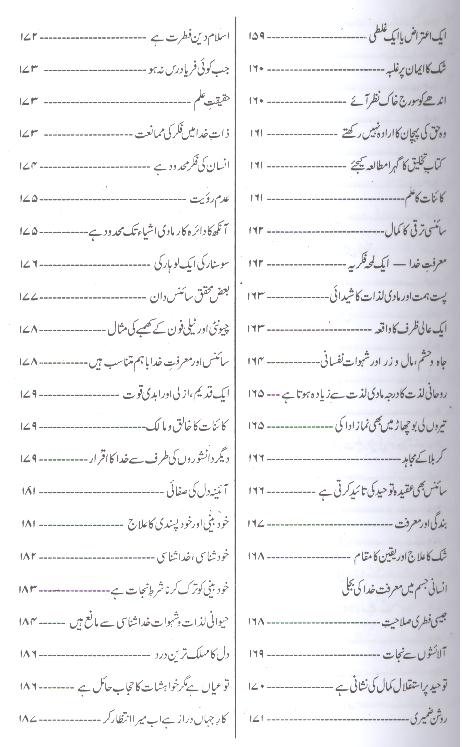 ایک اعتراض یا ایک غلطی ۱۵۹
شک کا ایمان پر غلبہ ۱۶۰
اندھے کو سورج خاک نظر آئے ۱۶۰
وہ حق کی پہچان کا ارادہ نہیں رکھتے ۱۶۱
کتاب تخلیق کا گہرا مطالعہ کیجئے ۱۶۱
کائنات کا علم ۱۶۱
سائنسی ترقی کا کمال ۱۶۲
معرفتِ خدا — ایک لمحہ فکریہ ۱۶۲
پست ہمت اور مادی لذات کا شیدائی ۱۶۳
ایک عالی ظرف کا واقعہ ۱۶۳
جاہ و حشم، مال و زر اور شہوات نفسانی ۱۶۴
روحانی لذت کا درجہ مادی لذت سے زیادہ ہوتا ہے ۱۶۵
تیروں کی بوچھاڑ میں بھی نماز ادا کی ۱۶۵
کربلا کے مجاہد ۱۶۶
سائنس بھی عقیدہ توحید کی تائید کرتی ہے ۱۶۶
بندگی اور معرفت ۱۶۷
شک کا علاج اور یقین کا مقام ۱۶۸
انسانی جسم میں معرفت خدا کی بجلی
جیسی فطری صلاحیت ۱۶۸
آلائشوں سے نجات ۱۶۹
توحید پر استقلال کمال کی نشانی ہے ۱۷۰
روشن ضمیری ۱۷۱
اسلام دین فطرت ہے ۱۷۲
جب کوئی فریاد رس نہ ہو ۱۷۳
حقیقتِ علم ۱۷۳
ذاتِ خدا میں فکر کی ممانعت ۱۷۳
انسان کی فکر محدود ہے ۱۷۴
عدم رؤیت ۱۷۵
آنکھ کا دائرہ کار مادی اشیاء تک محدود ہے ۱۷۵
سو سنار کی ایک لوہار کی ۱۷۶
بعض محقق سائنس دان ۱۷۷
چیونٹی اور ٹیلی فون کے کھمبے کی مثال ۱۷۸
سائنس اور معرفتِ خدا باہم متناسب ہیں ۱۷۸
ایک قدیم، ازلی اور ابدی قوت ۱۷۹
کائنات کا خالق و مالک ۱۷۹
دیگر دانشوروں کی طرف سے خدا کا اقرار ۱۷۹
آئینہ دل کی صفائی ۱۸۱
خود بینی اور خود پسندی کا علاج ۱۸۱
خود شناسی، خدا شناسی ۱۸۲
خود بینی کو ترک کرنا شرطِ نجات ہے ۱۸۳
حیوانی لذات و شہوات خدا شناسی سے مانع ہیں ۱۸۴
دل کا مہلک ترین درد ۱۸۶
تو عیاں ہے مگر خواہشات کا حجاب حائل ہے ۱۸۶
کارِ جہاں دراز ہے اب میرا انتظار کر ۱۸۷